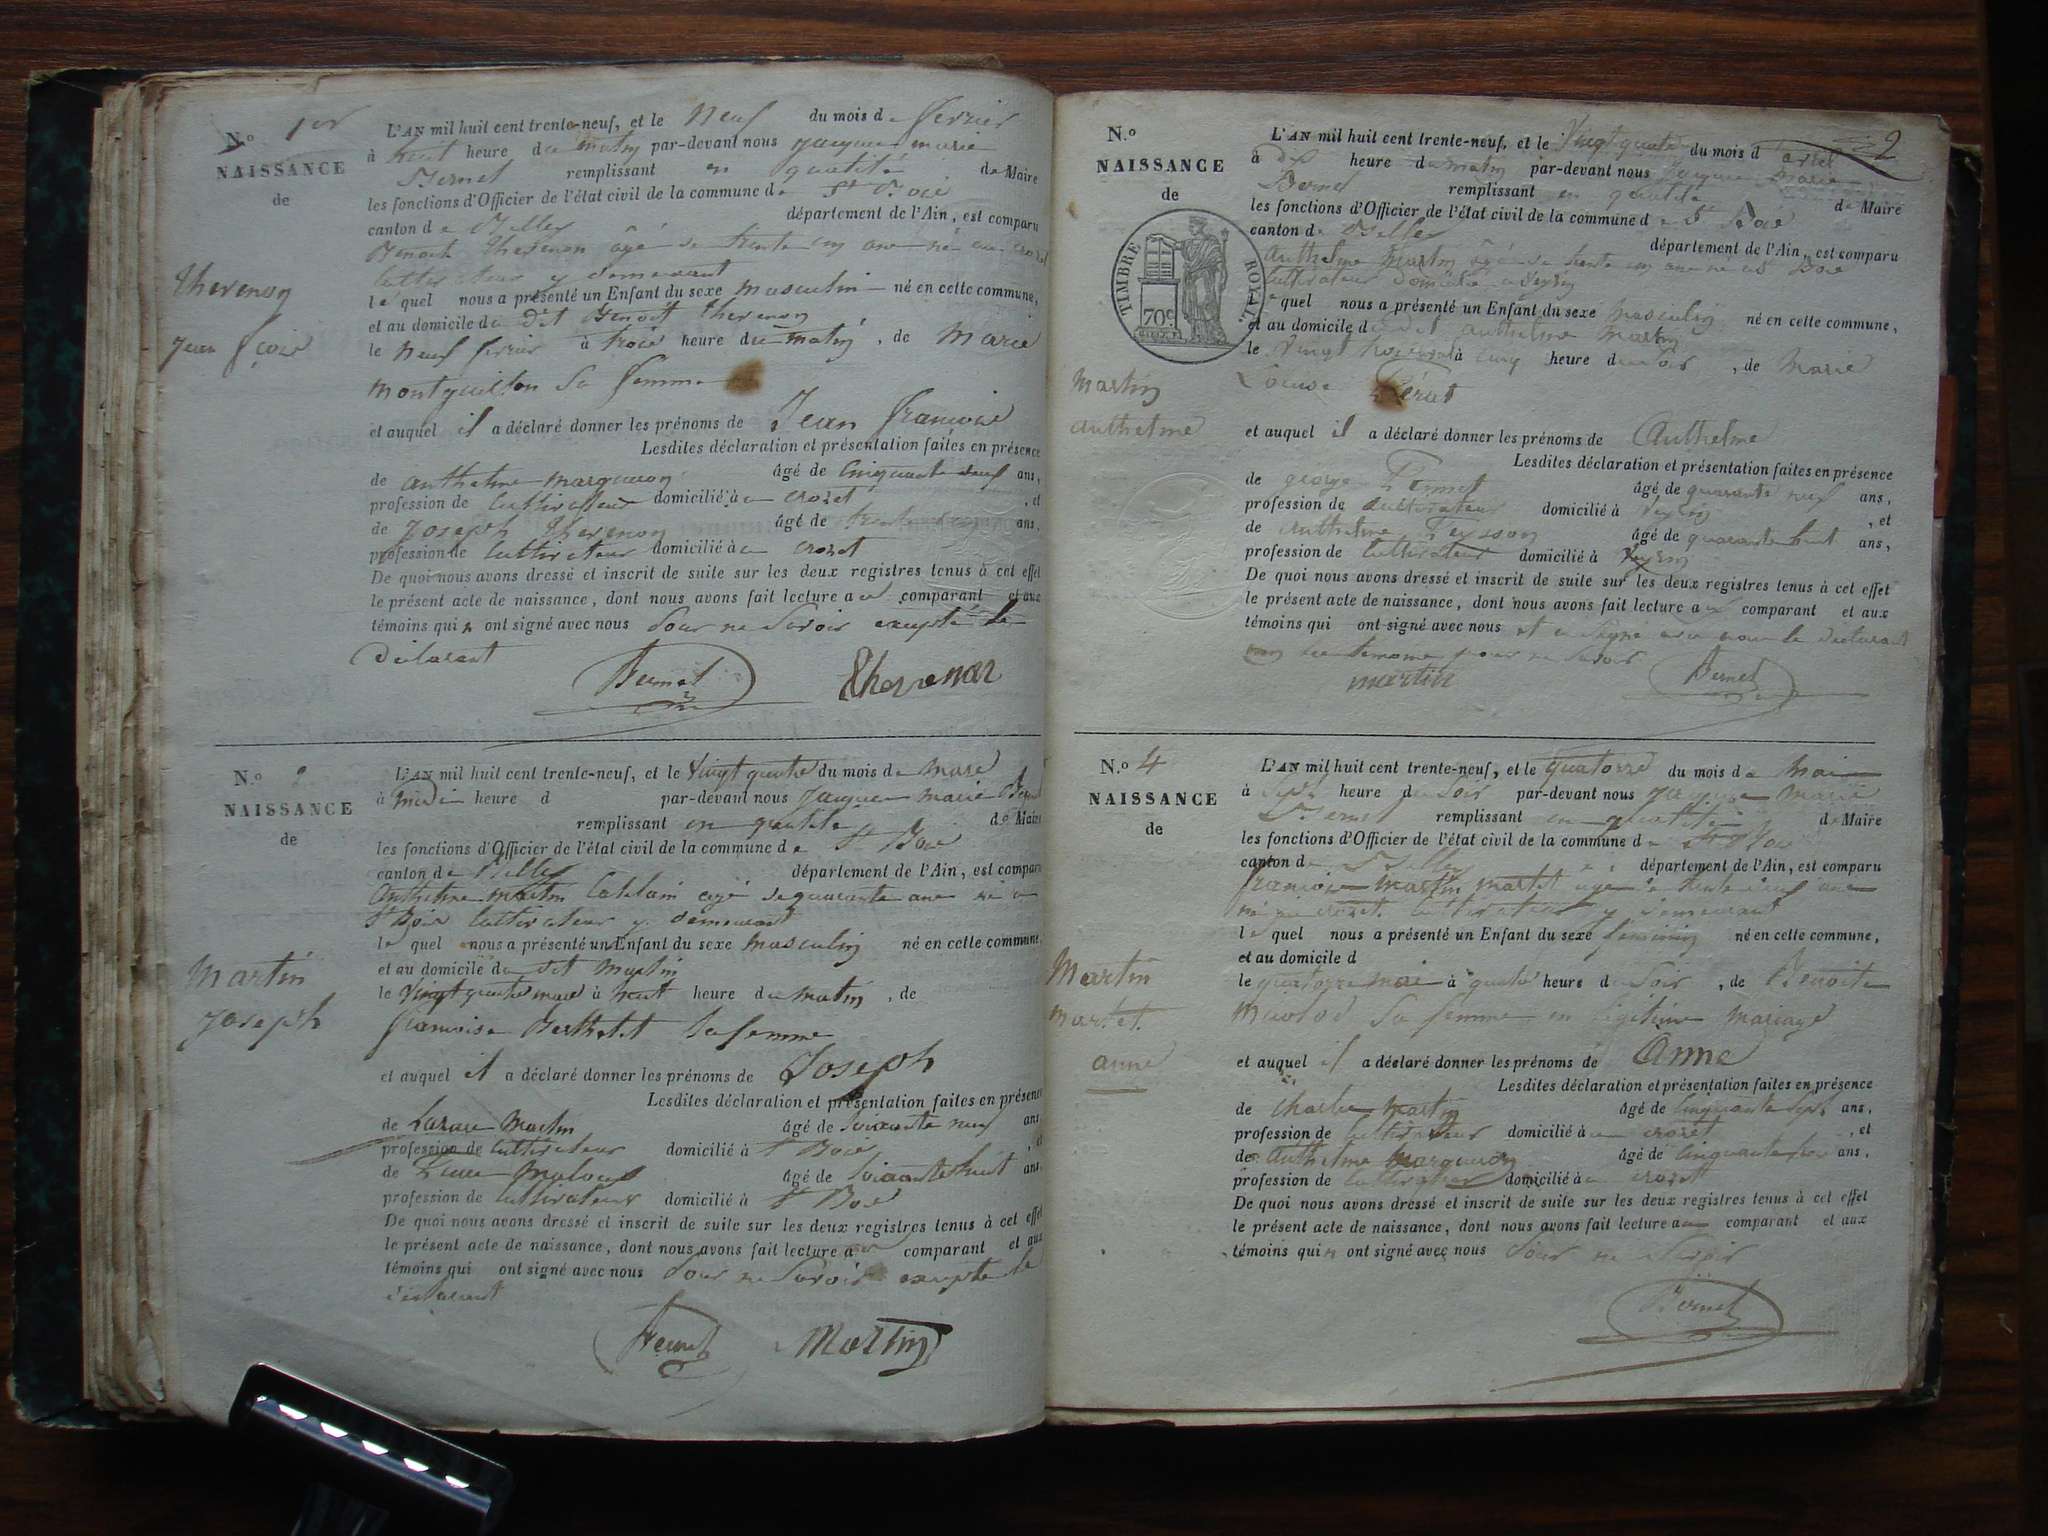 N.º 1er
NAISSANCE
de
Thevenon
Jean fçois
L'AN mil huit cent trente-neuf, et le neuf du mois de fevrier
à huit heure du matin par-devant nous jacques marie
Bernet remplissant en qualité de Maire
les fonctions d'Officier de l'état civil de la commune de St Bois
canton de Belley département de l'Ain, est comparu
Benoit thevenon âgé de trente cinq ans né au crozet
cultivateur y demeurant
le quel nous a présenté un Enfant du sexe masculin né en cette commune,
et au domicile du dit Benoit thevenon
le neuf fevrier à trois heure du matin, de marie
montquillon sa femme
et auquel il a déclaré donner les prénoms de Jean françois
Lesdites déclaration et présentation faites en présence
de anthelme marguron âgé de cinquante neuf ans,
profession de cultivateur domicilié à crozet, et
de Joseph thevenon âgé de trente ans,
profession de cultivateur domicilié à crozet
De quoi nous avons dressé et inscrit de suite sur les deux registres tenus à cet effet
le présent acte de naissance, dont nous avons fait lecture au comparant et aux
témoins qui n ont signé avec nous pour ne savoir excepté le
déclarant
Bernet Thevenon
N.º 2
NAISSANCE
de
Martin
joseph
L'AN mil huit cent trente-neuf, et le vingt quatre du mois de mars
à midi heure d par-devant nous jacques marie Bernet
remplissant en qualité de Maire
les fonctions d'Officier de l'état civil de la commune de St Bois
canton de Belley département de l'Ain, est comparu
Anthelme martin Catelain agé de quarante ans né a
St Bois cultivateur y demeurant
le quel nous a présenté un Enfant du sexe masculin né en cette commune,
et au domicile du dit martin
le vingt quatre mars à huit heure du matin, de
françoise Berthelet sa femme
et auquel il a déclaré donner les prénoms de Joseph
Lesdites déclaration et présentation faites en présence
de Lazare martin âgé de soixante neuf ans
profession de cultivateur domicilié à St Bois, et
de âgé de soixante huit ans,
profession de cultivateur domicilié à St Bois
De quoi nous avons dressé et inscrit de suite sur les deux registres tenus à cet effet
le présent acte de naissance, dont nous avons fait lecture au comparant et aux
témoins qui ont signé avec nous pour ne savoir excepté le
déclarant
Bernet Martin
2
N.º
NAISSANCE
de
TIMBRE ROYAL
70c
martin
anthelme
L'AN mil huit cent trente-neuf, et le vingt quatre du mois d avril
à dix heure du matin par-devant nous jacques marie
Bernet remplissant en qualité de Maire
les fonctions d'Officier de l'état civil de la commune de St Bois
canton de Belley département de l'Ain, est comparu
anthelme martin âgé de trente cinq ans né a St Bois
cultivateur domicilié a veyrin
le quel nous a présenté un Enfant du sexe masculin né en cette commune,
et au domicile du dit anthelme martin
le vingt à cinq heure du soir, de marie
Louise
et auquel il a déclaré donner les prénoms de Anthelme
Lesdites déclaration et présentation faites en présence
de george âgé de quarante neuf ans,
profession de cultivateur domicilié à veyrin, et
de anthelme Teysson âgé de quarante huit ans,
profession de cultivateur domicilié à veyrin
De quoi nous avons dressé et inscrit de suite sur les deux registres tenus à cet effet
le présent acte de naissance, dont nous avons fait lecture au comparant et aux
témoins qui ont signé avec nous et a signé avec nous le déclarant
non les temoins pour ne savoir
martin Bernet
N.º 4
NAISSANCE
de
Martin
martet
anne
L'AN mil huit cent trente-neuf, et le quatorze du mois de mai
à sept heure du soir par-devant nous jacques marie
Bernet remplissant en qualité de Maire
les fonctions d'Officier de l'état civil de la commune de St Bois
canton de Belley département de l'Ain, est comparu
françois martin martet agé de trente neuf ans
né au crozet cultivateur y demeurant
le quel nous a présenté un Enfant du sexe feminin né en cette commune,
et au domicile d
le quatorze mai à quatre heure du soir, de Benoite
sa femme en légitime mariage
et auquel il a déclaré donner les prénoms de anne
Lesdites déclaration et présentation faites en présence
de charles martin âgé de cinquante sept ans,
profession de cultivateur domicilié à crozet, et
de anthelme marguron âgé de cinquante ans,
profession de cultivateur domicilié à crozet
De quoi nous avons dressé et inscrit de suite sur les deux registres tenus à cet effet
le présent acte de naissance, dont nous avons fait lecture au comparant et aux
témoins qui n ont signé avec nous pour ne savoir
Bernet